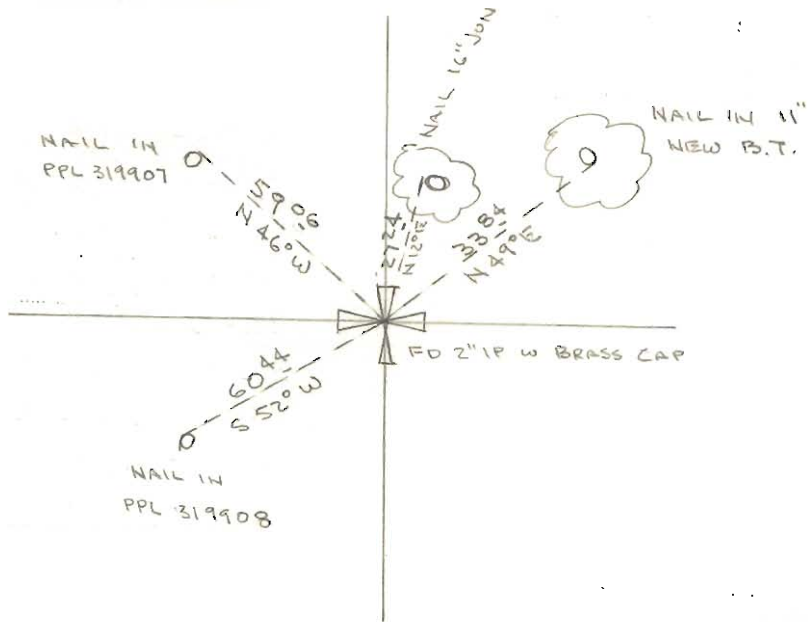 NAIL 16" JON
NAIL IN 11"
NEW B.T.
NAIL IN
PPL 319907
59.06
N 46° W
27.24
N 12° E
33.84
N 49° E
FD 2" IP W BRASS CAP
60.44
S 52° W
NAIL IN
PPL 319908